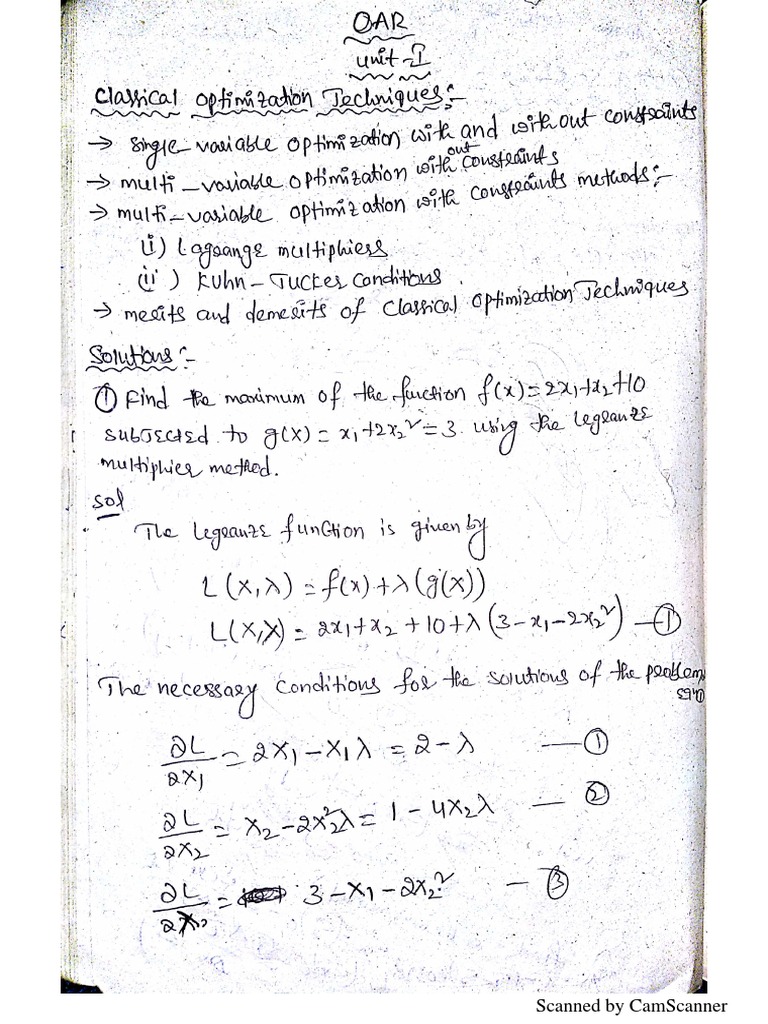 OAR
unit-I
Classical Optimization Techniques:-
→ single-variable optimization with and without constraints
→ multi-variable optimization without constraints
→ multi-variable optimization with constraints methods:-
(i) Lagrange multipliers
(ii) Kuhn-Tucker Conditions
→ merits and demerits of Classical Optimization Techniques
Solutions:-
① Find the maximum of the function f(x)=2x₁+x₂+10
subjected to g(x)= x₁+2x₂²=3 using the legranze
multiplier method.
sol
The legranze function is given by
L(x,λ) = f(x)+λ(g(x))
L(x,λ)= 2x₁+x₂+10+λ(3-x₁-2x₂²) —①
The necessary conditions for the solutions of the problem
∂L/∂x₁ = 2x₁-x₁λ = 2-λ —①
∂L/∂x₂ = x₂-2x₂²λ = 1-4x₂λ —②
∂L/∂x₂ = 3-x₁-2x₂² —③
Scanned by CamScanner